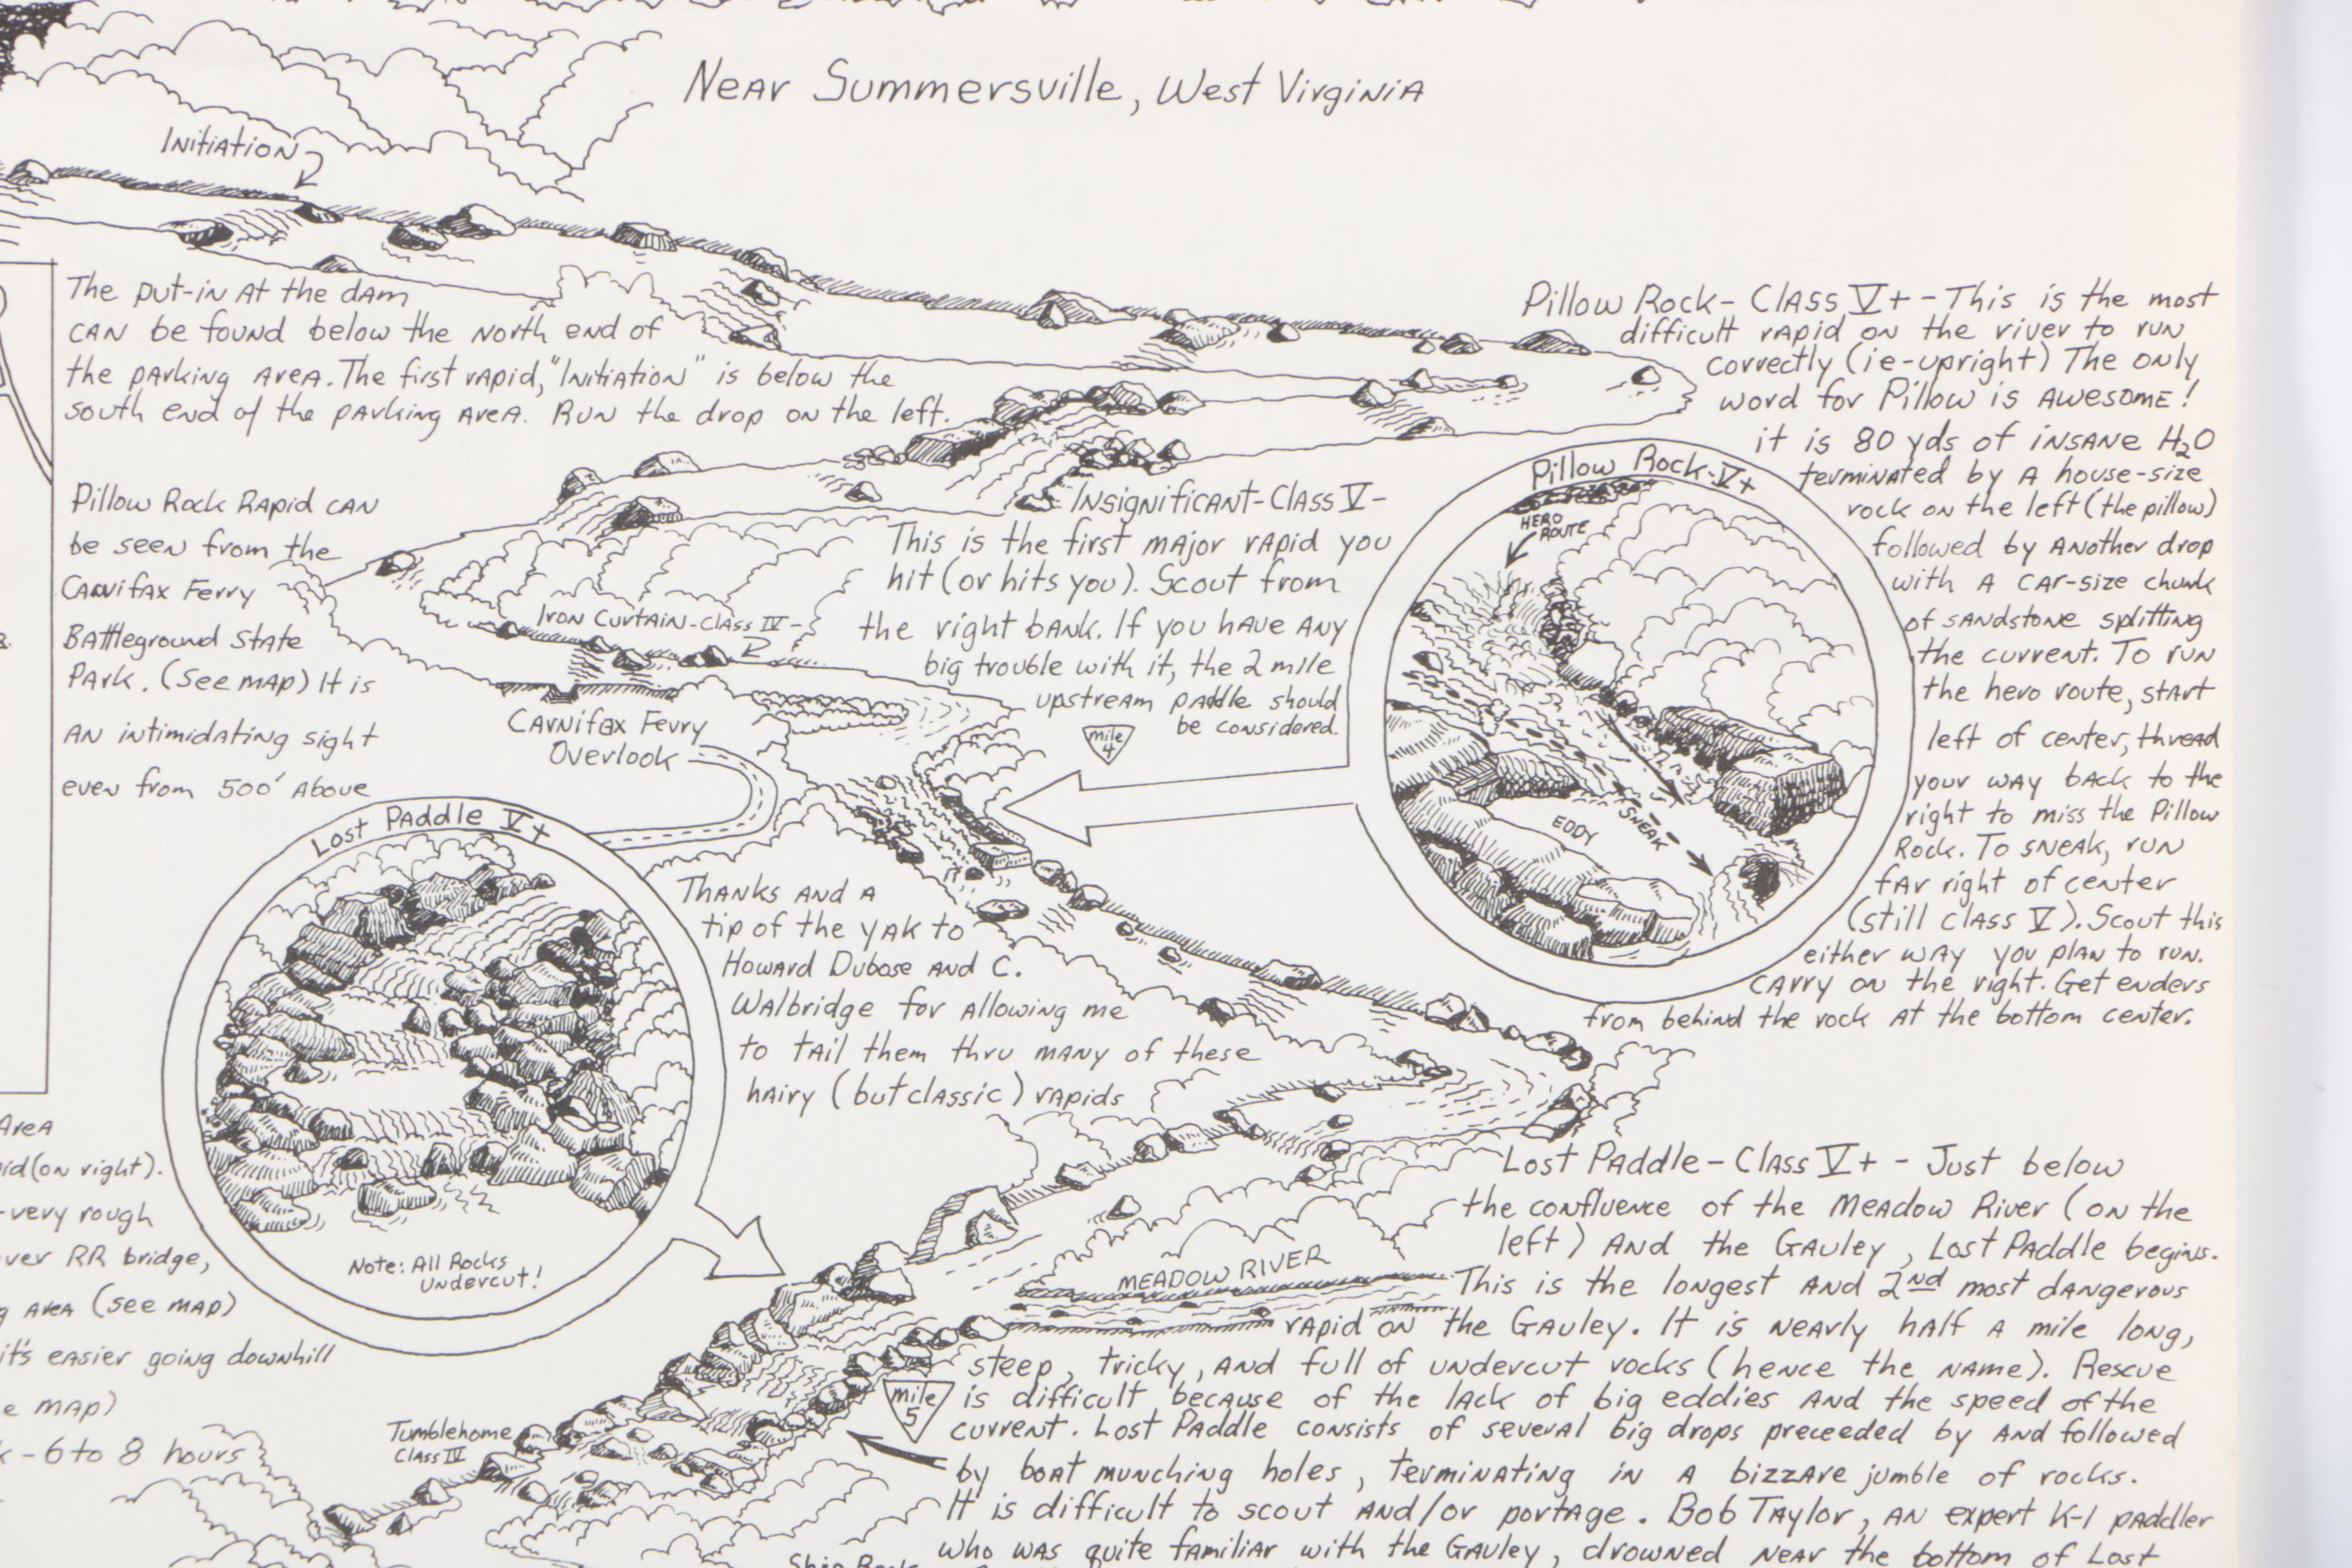 Near Summersville, West Virginia
Initiation
The put-in at the dam
can be found below the north end of
the parking area. The first rapid, "Initiation" is below the
south end of the parking area. Run the drop on the left.
Pillow Rock Rapid can
be seen from the
Carnifax Ferry
Battleground State
Park. (see map) It is
an intimidating sight
even from 500' above
Insignificant-Class V-
This is the first major rapid you
hit (or hits you). Scout from
the right bank. If you have any
big trouble with it, the 2 mile
upstream paddle should
be considered.
Iron Curtain-Class IV-
Carnifax Ferry
Overlook
mile
4
Pillow Rock- Class V+ - This is the most
difficult rapid on the river to run
correctly (ie-upright) The only
word for Pillow is awesome!
it is 80 yds of insane H2O
terminated by a house-size
rock on the left (the pillow)
followed by another drop
with a car-size chunk
of sandstone splitting
the current. To run
the hero route, start
left of center, thread
your way back to the
right to miss the Pillow
Rock. To sneak, run
far right of center
(still class V). Scout this
either way you plan to run.
Carry on the right. Get enders
from behind the rock at the bottom center.
Pillow Rock-V+
Hero
Route
Eddy
Sneak
Lost Paddle V+
Note: All Rocks
Undercut!
Thanks and a
tip of the yak to
Howard Dubose and C.
Walbridge for allowing me
to tail them thru many of these
hairy (but classic) rapids
Area
id (on right).
-very rough
ver RR bridge,
g area (see map)
it's easier going downhill
e map)
k - 6 to 8 hours
Tumblehome
Class IV
Meadow River
mile
5
Lost Paddle - Class V+ - Just below
the confluence of the Meadow River (on the
left) and the Gauley, Lost Paddle begins.
This is the longest and 2nd most dangerous
rapid on the Gauley. It is nearly half a mile long,
steep, tricky, and full of undercut rocks (hence the name). Rescue
is difficult because of the lack of big eddies and the speed of the
current. Lost Paddle consists of several big drops preceeded by and followed
by boat munching holes, terminating in a bizzare jumble of rocks.
It is difficult to scout and/or portage. Bob Taylor, an expert K-1 paddler
who was quite familiar with the Gauley, drowned near the bottom of Lost
Ship Rock